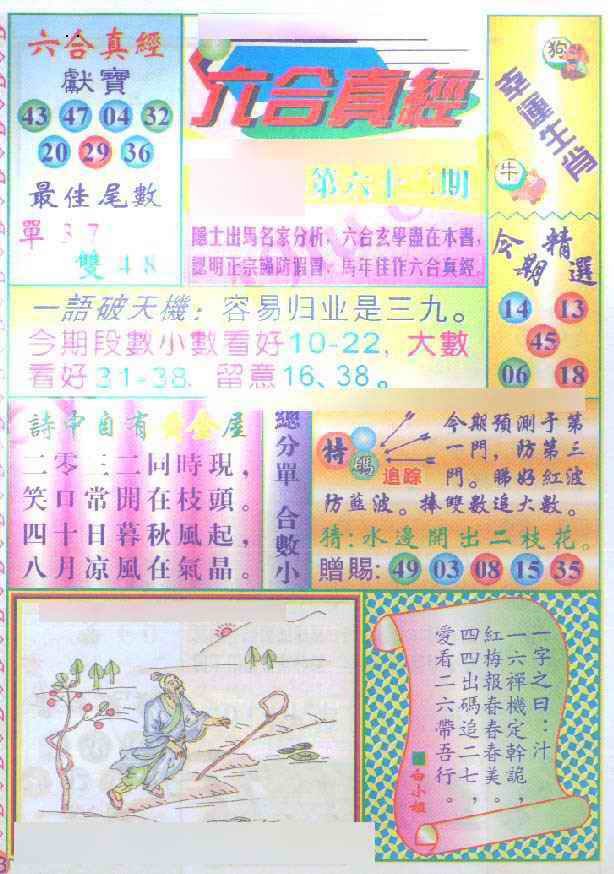 六合真經
獻寶
43 47 04 32
20 29 36
最佳尾數
單 37
雙 48
六合真經
第六十二期
隱士出馬名家分析，六合玄學盡在本書，
認明正宗歸防假冒，馬年佳作六合真經。
幸運生肖
狗
牛
今期精選
14 13
45
06 18
一語破天機：容易归业是三九。
今期段數小數看好10-22，大數
看好31-38，留意16、38。
詩中自有黃金屋
二零三二同時現，
笑口常開在枝頭。
四十日暮秋風起，
八月凉風在氣晶。
總分單 合數小
特碼追踪
今期預測于第
一門，防第三
門。睇好紅波
防藍波。捧雙數追大數。
猜：水邊開出二枝花。
贈賜：49 03 08 15 35
一字之曰：汁
一六禪機定幹詭，
紅梅報春春春美。
四四出碼追二七，
愛看二六帶吾行。
白小姐